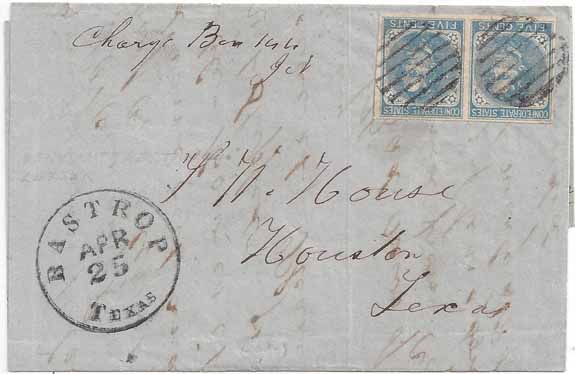 Charge Box
FIVE CENTS FIVE CENTS
CONFEDERATE STATES CONFEDERATE STATES
T. W. House
Houston
Texas
BASTROP
APR
25
TEXAS